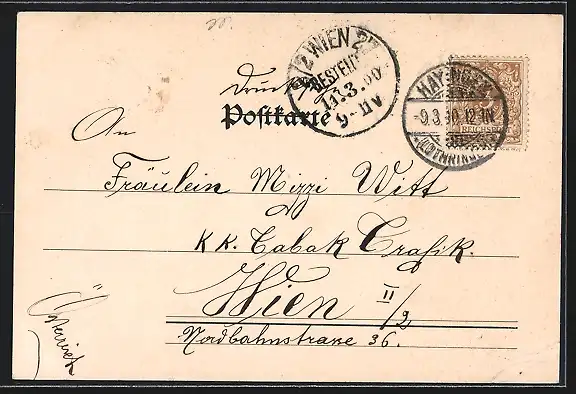 2/2 WIEN 2
BESTELLT
11.3.00
9-11V
HAYINGEN
-9.3.00 12-1N
(LOTHRINGEN)
REICHSPOST
Drucksache
Postkarte
An
Fräulein Mizzi Witt
KK. Tabak Trafik.
Wien II/2
Nordbahnstraße 36.
Österreich